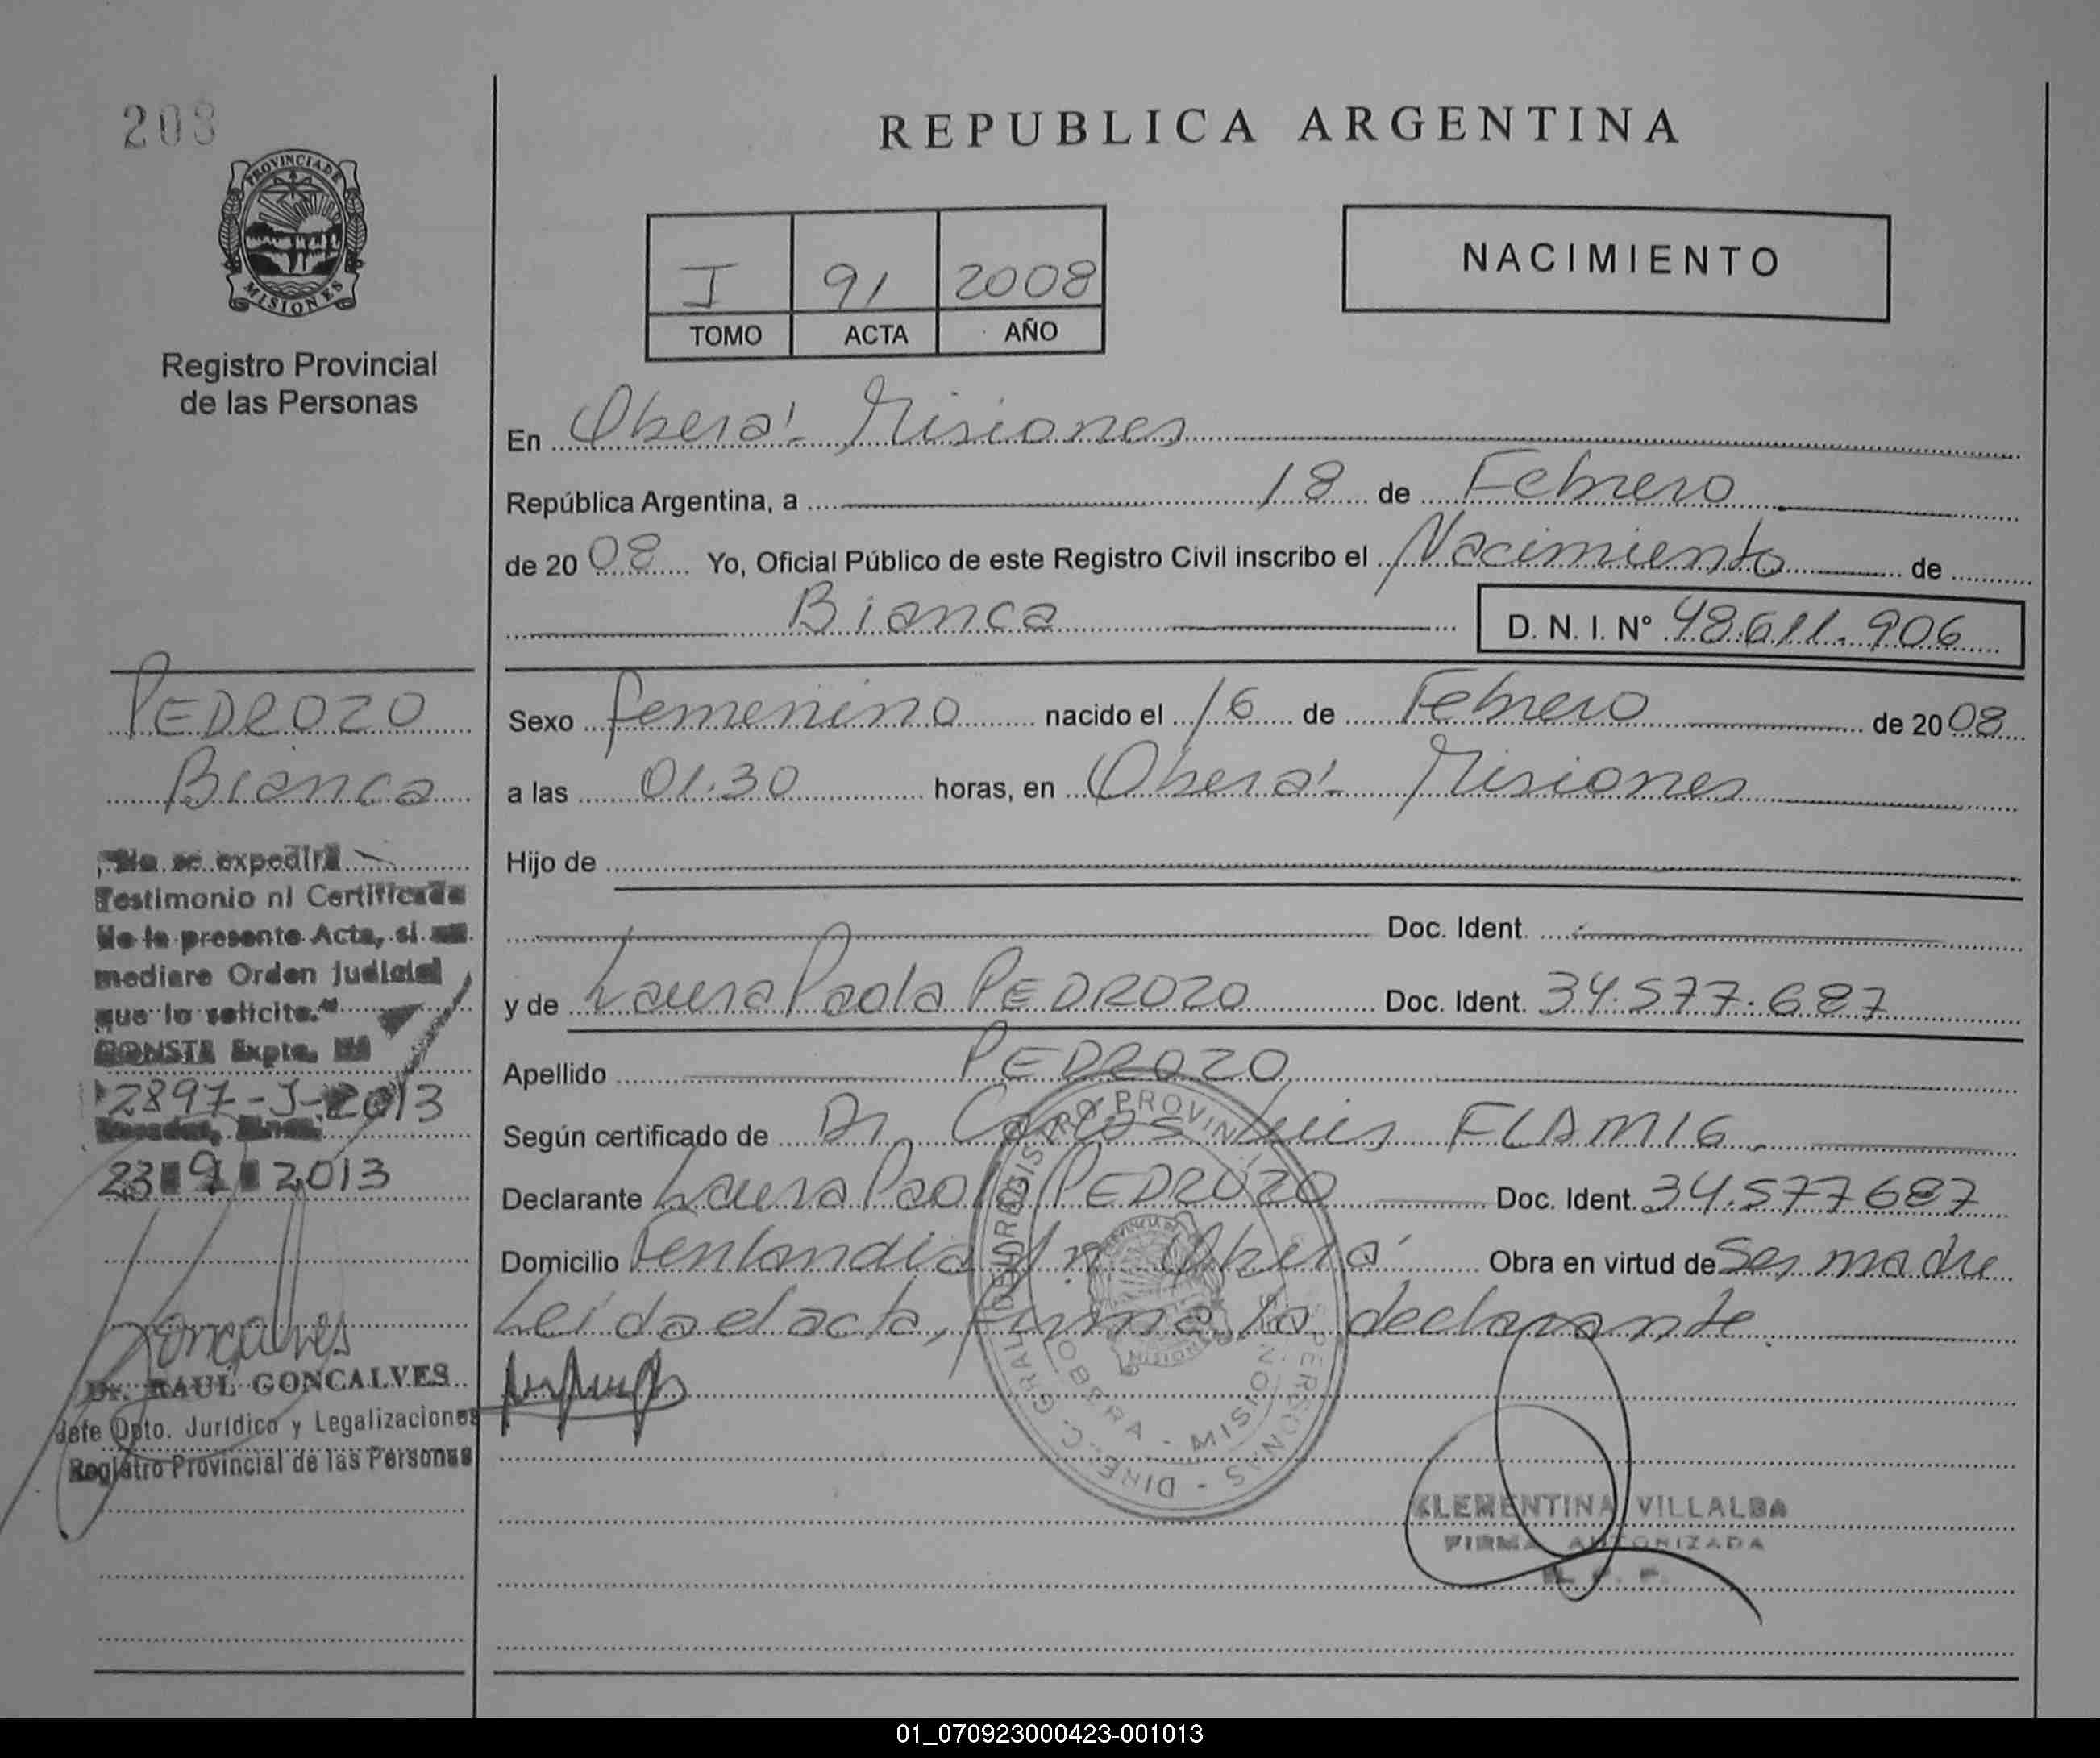 203
PROVINCIA DE
MISIONES
Registro Provincial
de las Personas
REPUBLICA ARGENTINA
I 91 2008
TOMO ACTA AÑO
NACIMIENTO
En Oberá - Misiones
República Argentina, a 18 de Febrero
de 2008 Yo, Oficial Público de este Registro Civil inscribo el Nacimiento de
Bianca D. N. I. N° 48.611.906
Sexo femenino nacido el 16 de Febrero de 2008
a las 01.30 horas, en Oberá - Misiones
Hijo de
Doc. Ident.
y de Laura Paola PEDROZO Doc. Ident. 34.577.687
Apellido PEDROZO
Según certificado de Dr. Carlos Luis FLAMIG.
Declarante Laura Paola PEDROZO Doc. Ident. 34.577687
Domicilio s/n Oberá Obra en virtud de Ser madre
Leída el acta, firma la declarante.
PEDROZO
Bianca
"No se expedirá
Testimonio ni Certificado
de la presente Acta, si no
mediare Orden Judicial
que lo solicite."
CONSTA Expte. Nº
2897-J-2013
23 9 2013
Goncalves
Dr. RAUL GONCALVES
Jefe Dpto. Jurídico y Legalizaciones
Registro Provincial de las Personas
REGISTRO PROVINCIAL PERSONAS - DIREC. GRAL.
OBERA - MISIONES
CLEMENTINA VILLALBA
FIRMA AUTORIZADA
01_070923000423-001013